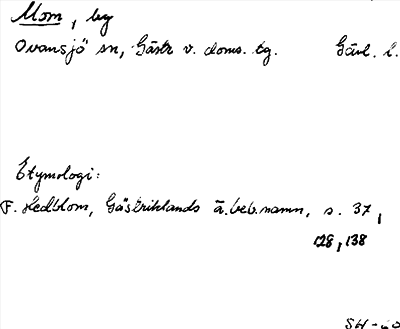 Mom, by
Ovansjö sn, Gästr v. doms. tg. Gävl. l.
Etymologi:
F. Hedblom, Gästriklands ä. beb. namn, s. 37,
128, 138
SH-60